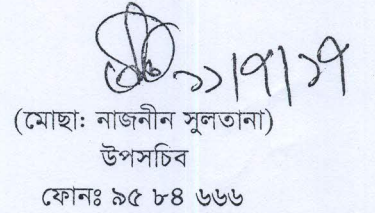 ১১/৭/১৭
(মোছা: নাজনীন সুলতানা)
উপসচিব
ফোনঃ ৯৫ ৮৪ ৬৬৬